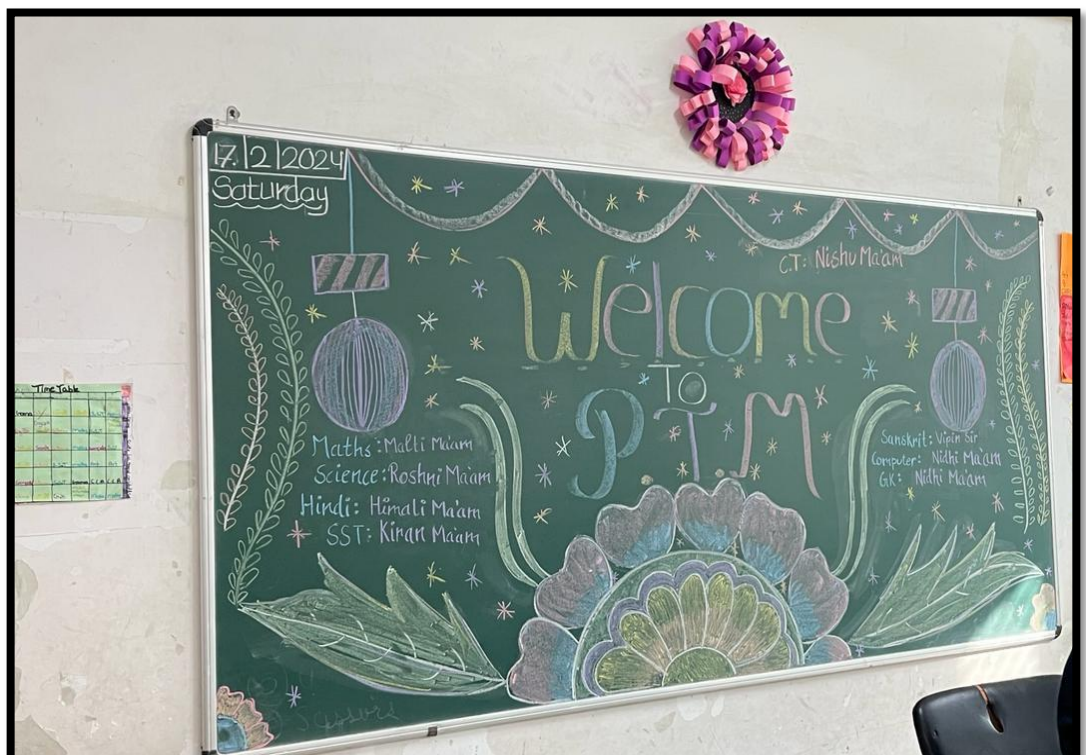 17.|2|2024
Saturday
C.T: Nishu Ma'am
Welcome
TO
P.T.M
Maths: Malti Ma'am
Science: Roshni Ma'am
Hindi: Himali Ma'am
SST: Kiran Ma'am
Sanskrit: Vipin Sir
Computer: Nidhi Ma'am
GK: Nidhi Ma'am
Time Table